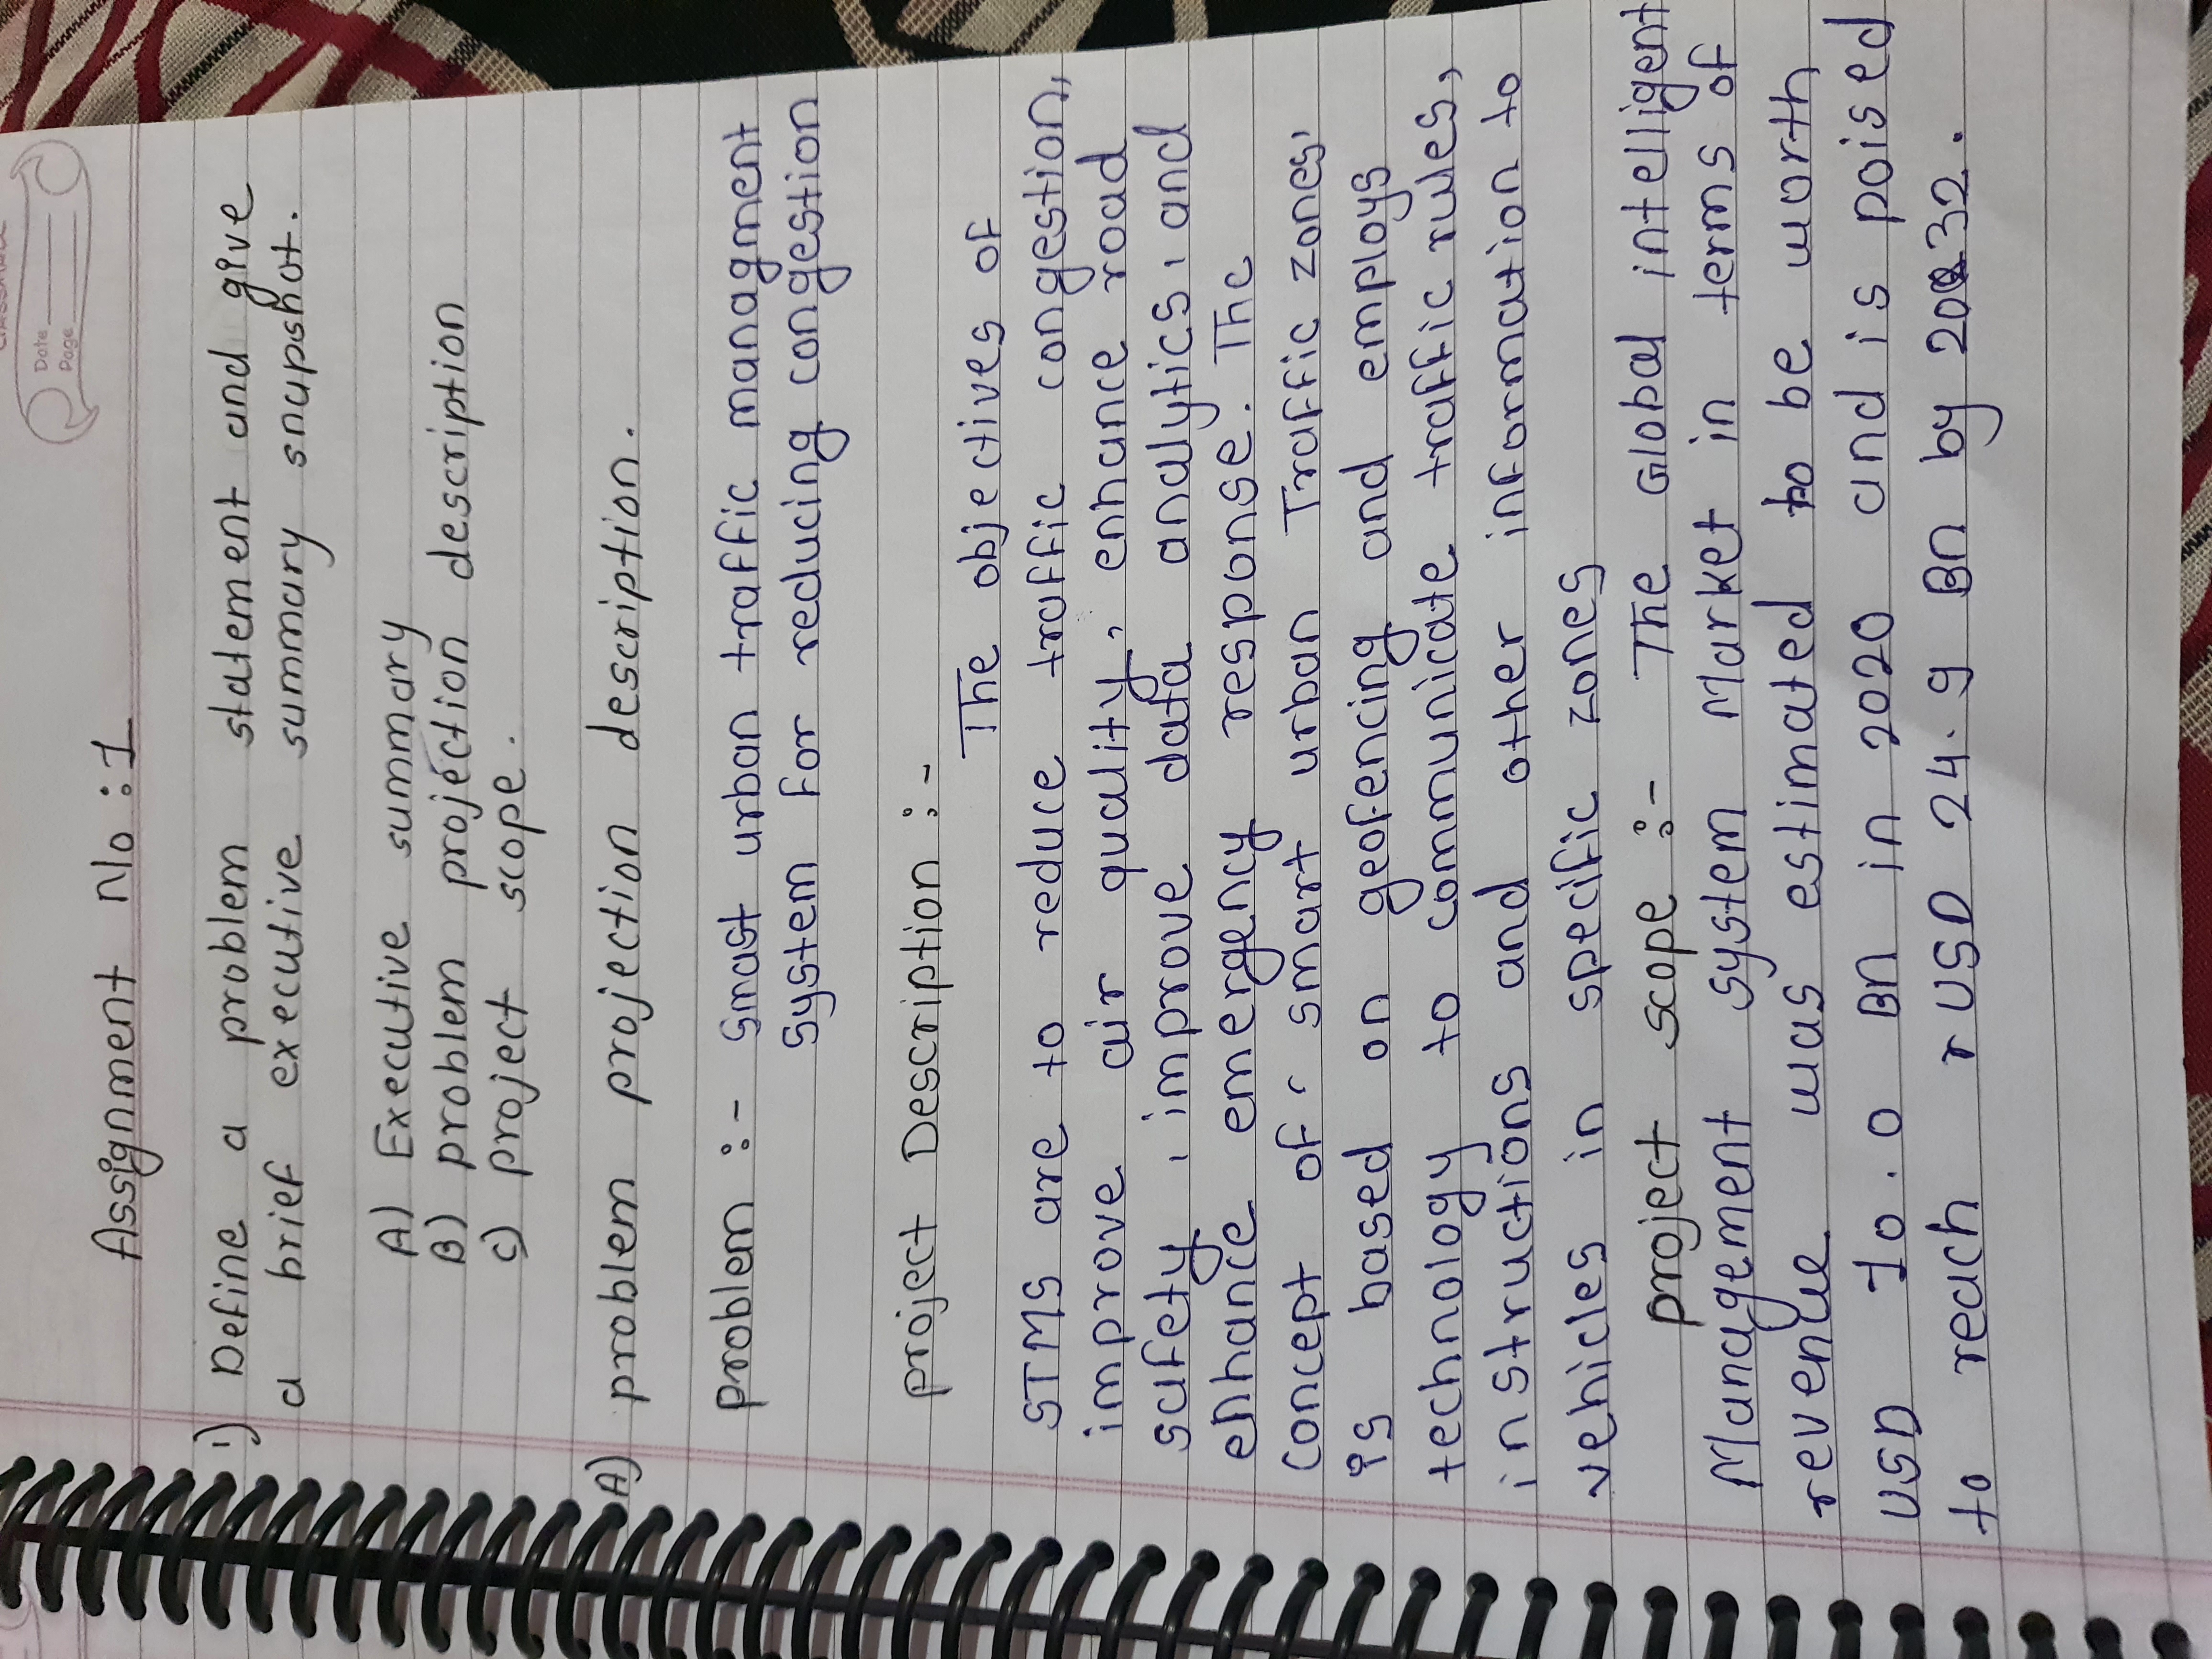 Date
Page
Assignment No : 1
1) Define a problem statement and give
a brief executive summary snapshot.
A) Executive summary
B) problem projection description
c) project scope.
A) problem projection description.
problem :- Smast urban traffic managment
system for reducing congestion
project Description :-
The objectives of
STMS are to reduce traffic congestion,
improve air quality, enhance road
safety, improve data analytics, and
enhance emergency response. The
concept of ' smart urban Traffic zones'
is based on geofencing and employs
technology to communicate traffic rules,
instructions and other information to
vehicles in specific zones
project scope :- The Global intelligent
Management system Market in terms of
revenue was estimated to be worth
USD 10.0 BN in 2020 and is poised
to reach r USD 24.9 BN by 2032.